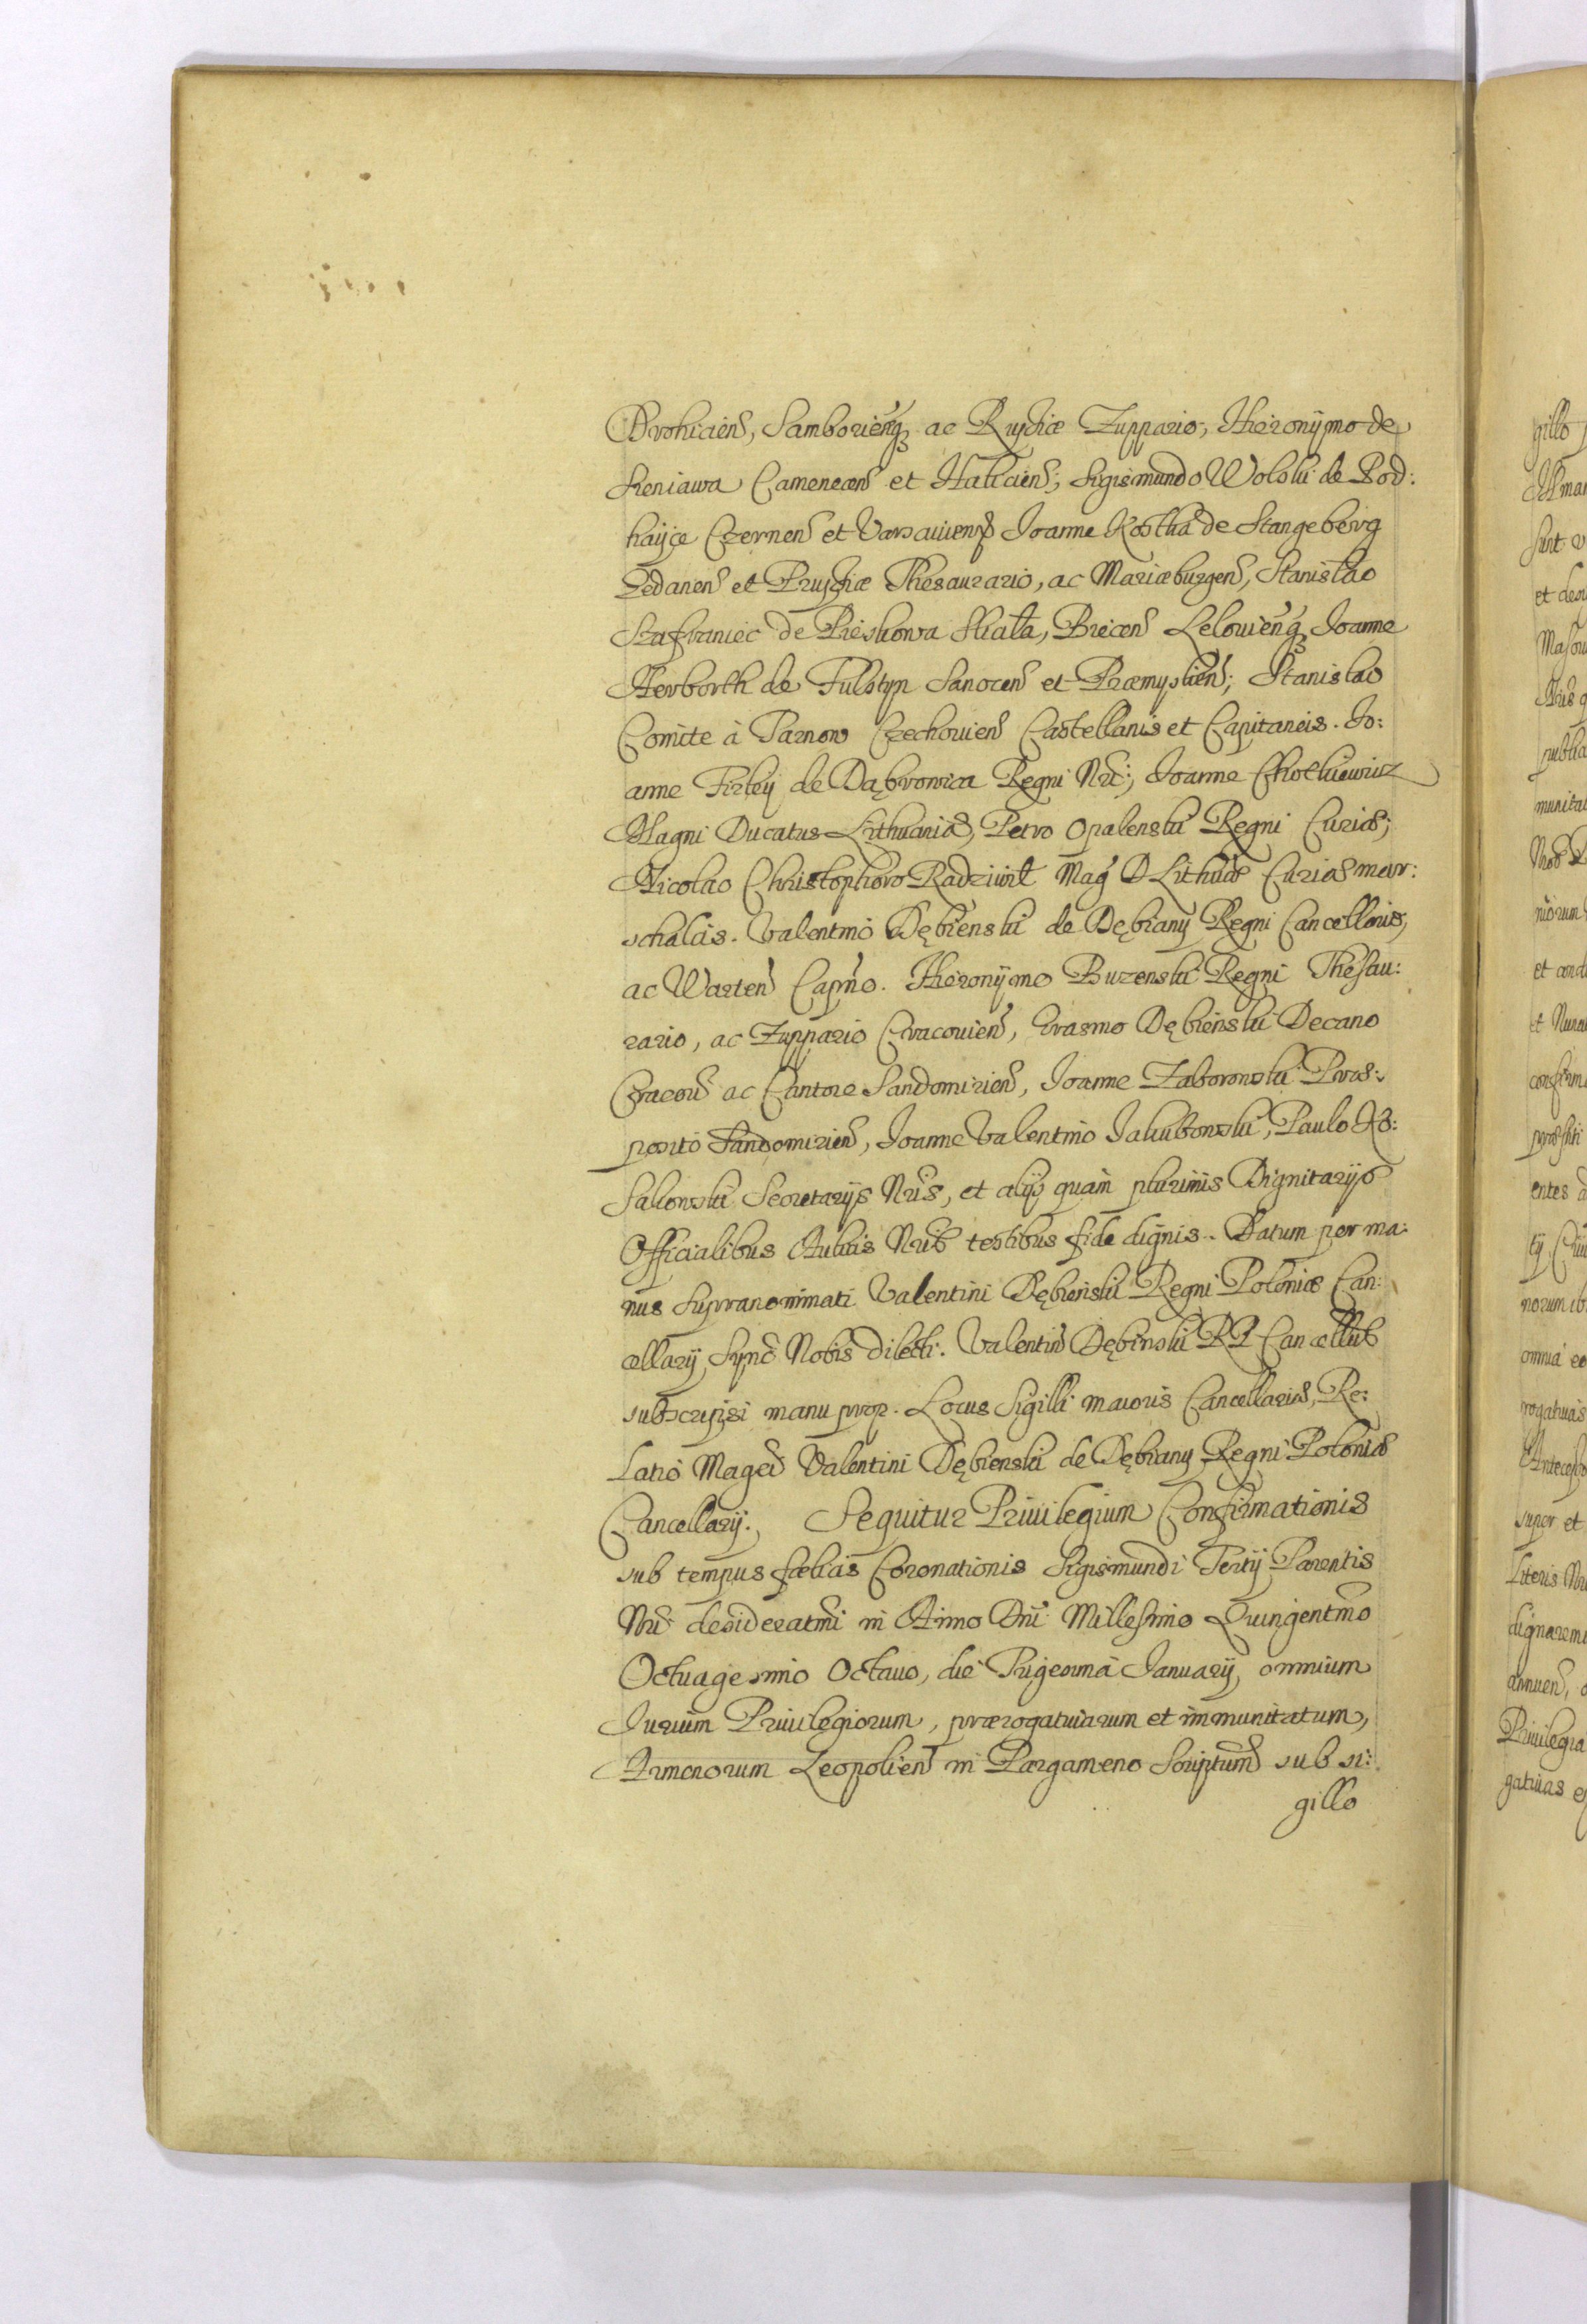 Drohicien, Samborien(que) ac Russiæ Zuppario, Hieronymo de
Sieniawa Camenecen et Halicien; Sigismundo Wolski de Pod:
hayce Czernen et Varsavien, Joanne Kostka de Stangeberg
Gedanen et Prussiæ Thesaurario, ac Mariæburgen, Stanislao
Szafraniec de Pieskowa Skała, Biecen Lelovienq, Joanne
Herborth de Fulstyn Sanocen et Præmyslien; Stanislao
Comite à Tarnow Czechovien Castellanis et Capitaneis. Jo:
anne Firley de Dąbrowica Regni Nri; Joanne Chotkiewicz
Magni Ducatus Lithuaniæ, Petro Opalenski Regni Curiæ;
Nicolao Christophoro Radziwił Mag D Lithuæ Curiæ mar:
schalcis. Valentino Dębienski de Dębiany Regni Cancellario,
ac Warten Capno. Hieronymo Buzenski Regni Thesau:
rario, ac Zuppario Cracovien, Erasmo Dębienski Decano
Cracov ac Cantore Sandomirien, Joanne Zaborowski Præ:
posito Sandomirien, Joanne Valentino Jakubowski, Paulo Ko:
Sakowski Secretarijs Nris, et alijs quam plurimis Dignitarijs
Officialibus Aulicis Nris testibus fide dignis. Datum per ma:
nus Supranominati Valentini Dębienski Regni Poloniæ Can:
cellarij Sync Nobis dilecti. Valentin Dębinski RP Cancellus
subscripsi manu prop. Locus Sigilli maioris Cancellariæ, Re:
latio Magci Valentini Dębienski de Dębiany Regni Poloniæ
Cancellarij. Sequitur Privilegium Confirmationis
sub tempus fælicis Coronationis Sigismundi Tertij Parentis
Nri desideratmi in Anno Dni Millesimo Quingentmo
Octuagesimo Octavo, die Trigesima Januarij, omnium
Jurium Privilegiorum, prærogativarum et immunitatum,
Armenorum Leopolien in Pargameno Scriptum sub si:
gillo